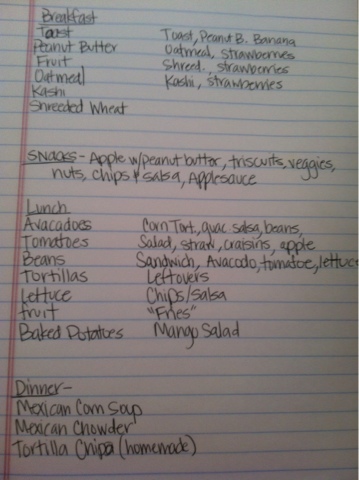 Breakfast
Toast Toast, Peanut B. Banana
Peanut Butter Oatmeal, strawberries
Fruit Shred., strawberries
Oatmeal Kashi, strawberries
Kashi
Shreeded Wheat
Snacks - Apple w/peanut butter, triscuits, veggies,
nuts, chips & salsa, Applesauce
Lunch
Avacadoes Corn Tort, guac. salsa, beans,
Tomatoes Salad, straw, craisins, apple
Beans Sandwich, Avacodo, tomatoe, lettuce
Tortillas Leftovers
Lettuce Chips/Salsa
fruit "Fries"
Baked Potatoes Mango Salad
Dinner-
Mexican Corn Soup
Mexican Chowder
Tortilla Chipa (homemade)